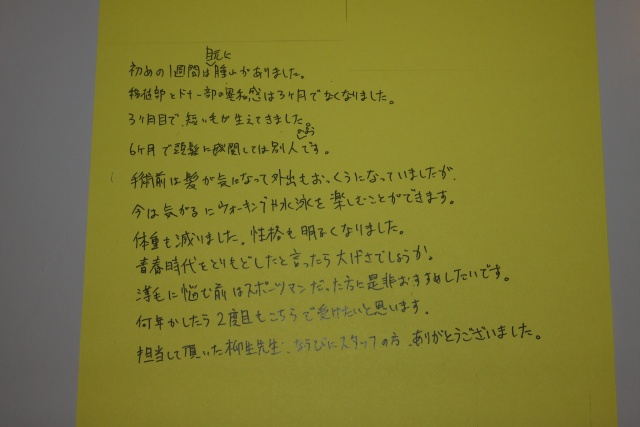 初めの1週間は既に腫れがありました。
移植部とドナー部の違和感は3ヶ月でなくなりました。
3ヶ月目で、短い毛が生えてきました。
6ヶ月で頭髪に関しては別人です。
手術前は髪が気になって外出もおっくうになっていましたが、
今は気がるにウォーキングや水泳を楽しむことができます。
体重も減りました。性格も明るくなりました。
青春時代をとりもどしたと言ったら大げさでしょうか。
薄毛に悩む前はスポーツマンだった方に是非おすすめしたいです。
何年かしたら2度目もこちらで受けたいと思います。
担当して頂いた柳生先生、ならびにスタッフの方、ありがとうございました。